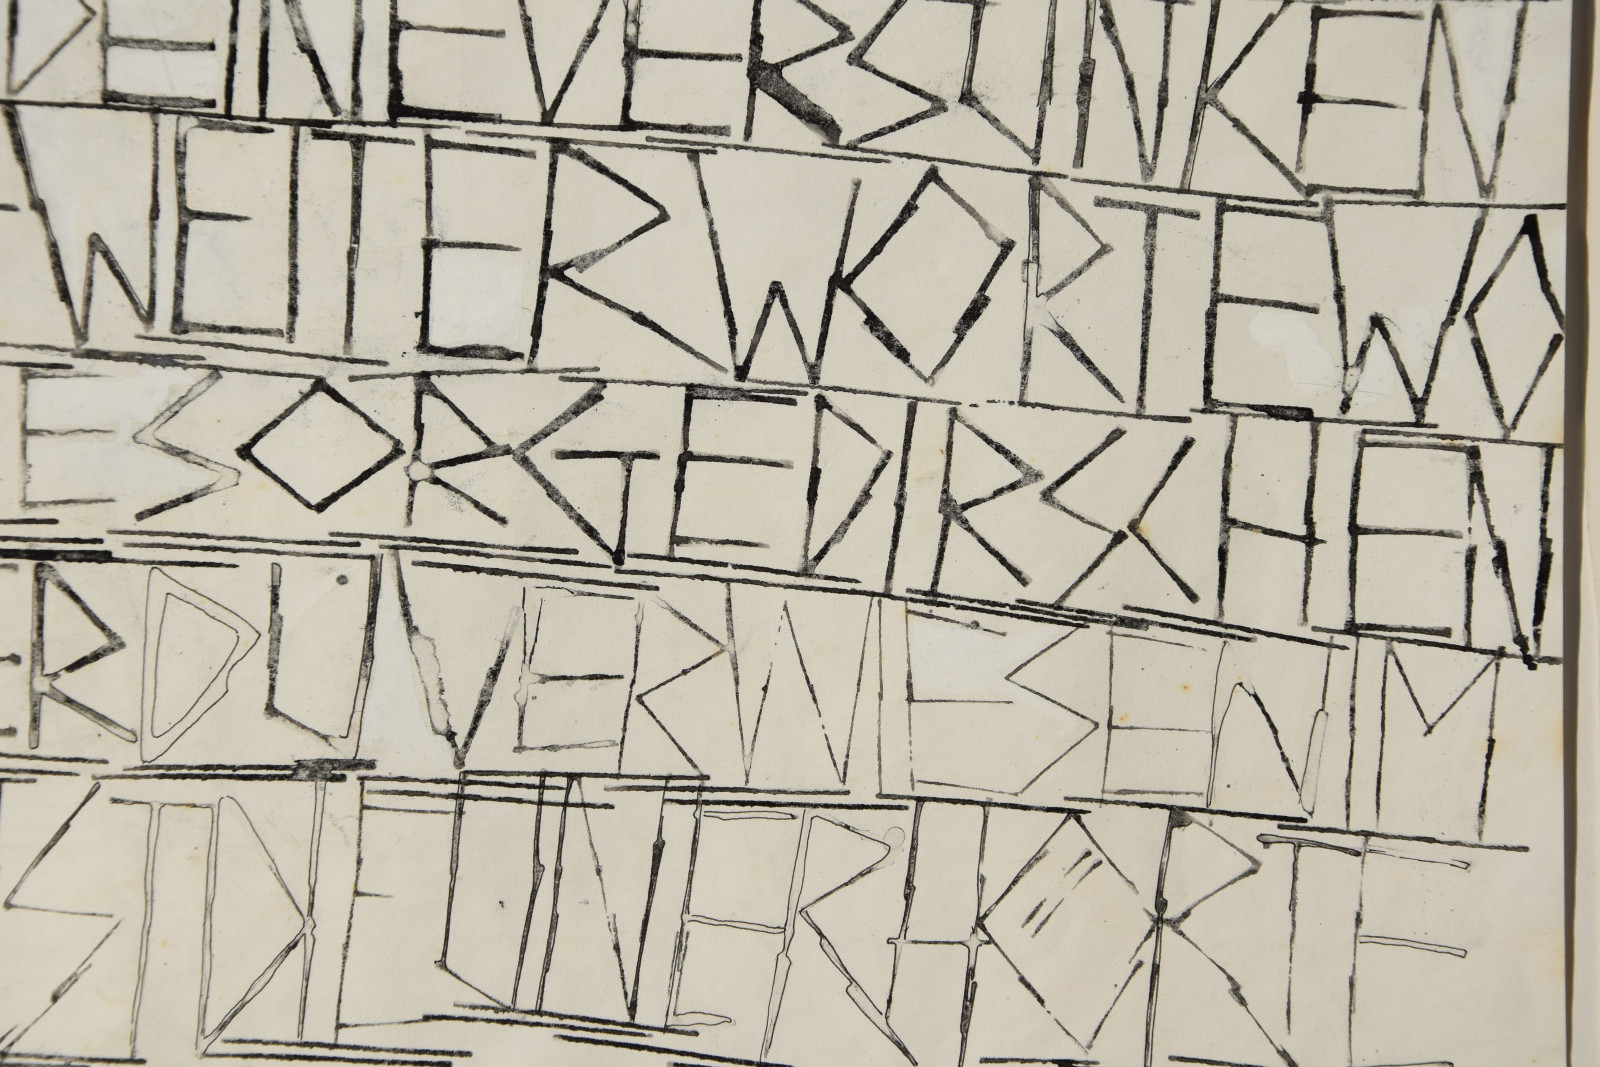 DEINEVERSUNKEN
WEITERWORTEWO
ESORGEDIRSCHEN
ERDUVERWESENIM
STDIEUNERHÖRTE